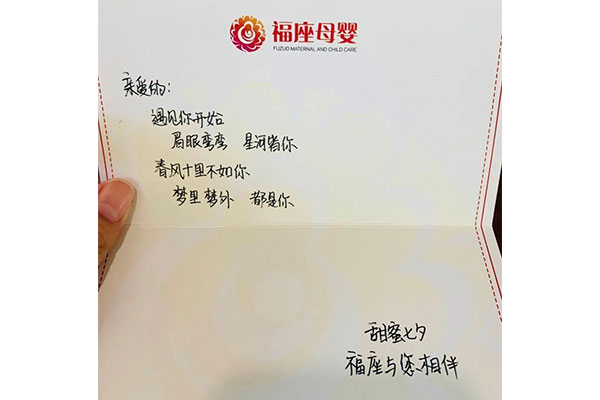 福座母婴
FUZUO MATERNAL AND CHILD CARE
亲爱的：
遇见你开始
眉眼弯弯 星河皆你
春风十里不如你
梦里梦外 都是你
甜蜜七夕
福座与您相伴